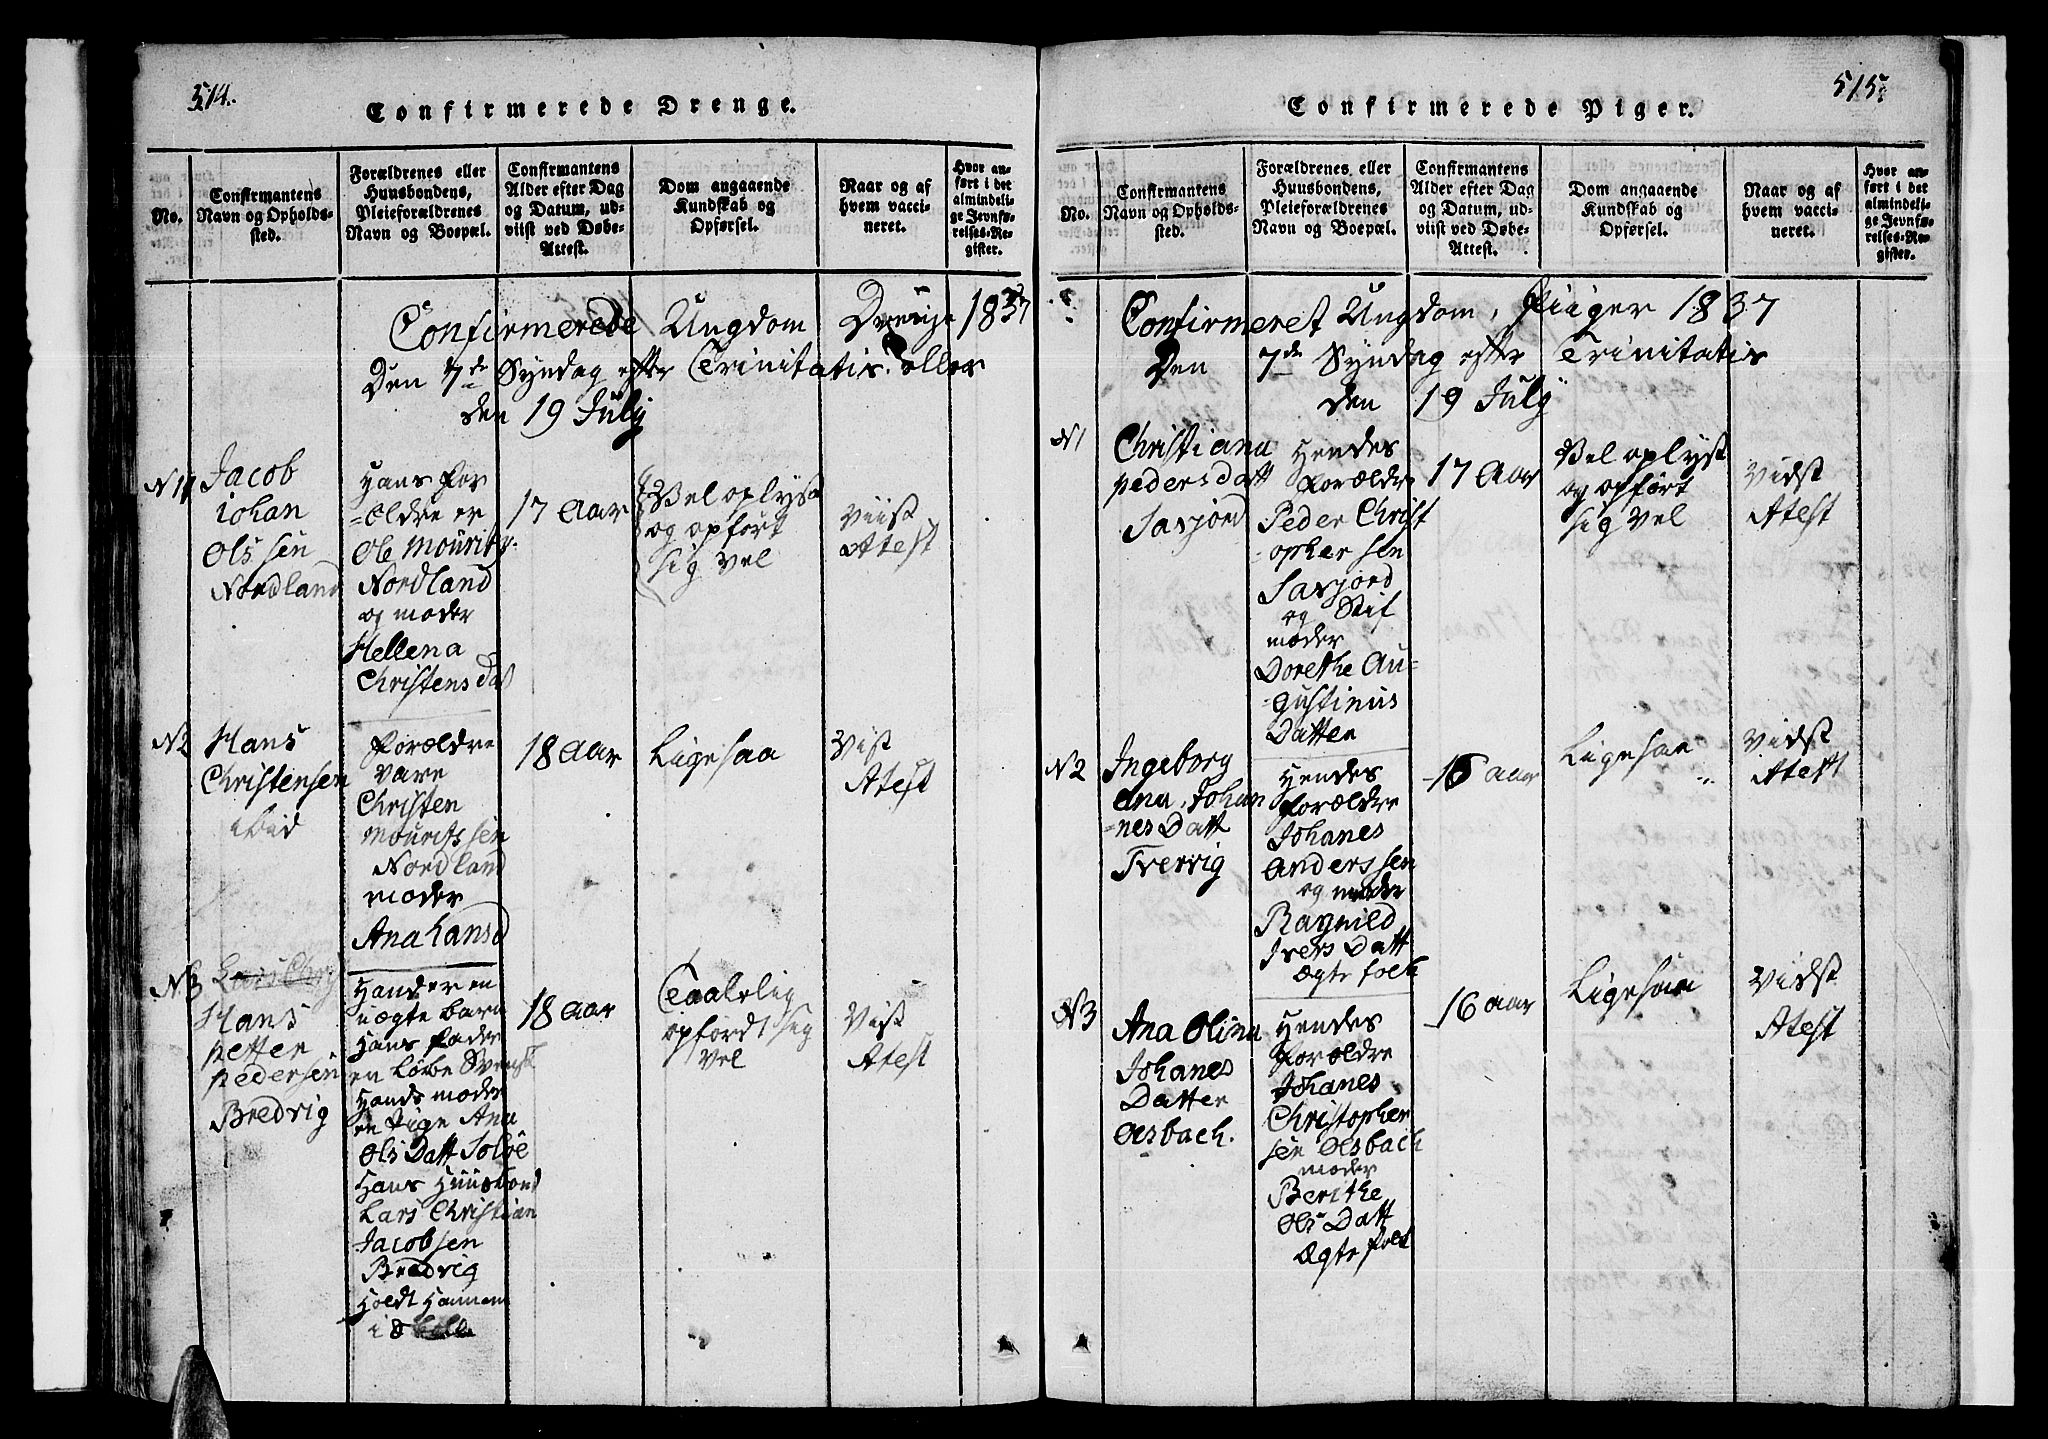 514.
Confirmerede Drenge.
No.
Confirmantens
Navn og Opholds-
sted.
Forældrenes eller
Huusbondens,
Pleieforældrenes
Navn og Boepæl.
Confirmantens
Alder efter Dag
og Datum, ud-
viist ved Døbe-
Attest.
Dom angaaende
Kundskab og
Opførsel.
Naar og af
hvem vacci-
neret.
Hvor an-
ført i det
almindeli-
ge Jevnfø-
relses-Re-
gister.
Confirmerede Ungdom Drenge 1837
Den 7de Syndag efter Trinitatis eller
den 19 July
N1
Jacob
iohan
Olssen
Nordland
Hans for
=ældre er
Ole Mouritz.
Nordland
og moder
Hellena
Christensdat
17 Aar
Vel oplyst
og opført
sig vel
Viist
Atest
N2
Hans
Christensen
ibid
Forældre
vare
Christen
Mouritssen
Nordland
moder
Ana Hansd
18 Aar
Ligesaa
Vist
Atest
N3
Lars Chr
Hans
petter
pedersen
Bredvig
Hand er en
uægte barn
Hans fader
en Løbe Svensk
Hands moder
en Pige Ana
Ols Datt Solöe
Hans Huusbond
Lars Christian
Jacobsen
Bredvig
Holdt Hannem
i Skolle
18 Aar
Taalelig
opfördt sig
vel
Vist
Atest
515.
Confirmerede Piger.
No.
Confirmantens
Navn og Opholds-
sted.
Forældrenes eller
Huusbondens,
Pleieforældrenes
Navn og Boepæl.
Confirmantens
Alder efter Dag
og Datum, ud-
viist ved Døbe-
Attest.
Dom angaaende
Kundskab og
Opførsel.
Naar og af
hvem vacci-
neret.
Hvor an-
ført i det
almindeli-
ge Jevnfø-
relses-Re-
gister.
Confirmeret Ungdom, Piiger 1837
Den 7de Syndag efter Trinitatis
den 19 July
N1
Christiana
pedersdatt
Saxjord
Hendes
Forældre
Peder Christ
=ophersen
Saxjord
og Stif
moder
Dorethe Au=
=gustinus
Datter
17 Aar
Vel oplyst
og opført
sig vel
Vidst
Atest
N2
Ingeborg
Ana, Johan
=nes Datt
Tvervig
Hendes
forældre
Johanes
Anderssen
og moder
Ragnild
Ivers Datt
Ægte folk
16 aar
Ligesaa
Vidst
Atest
N3
Ana Olina
Johanes
Datter
Olsbach.
Hendes
Forældre
Johanes
Christopher
sen Olsbach
moder
Berithe
Ols Datt
Ægte folk
16 aar
Ligesaa
Vidst
Atest